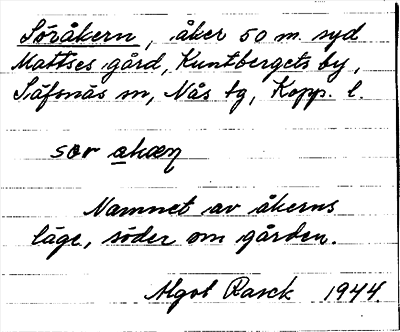 Söråkern, åker 50 m. syd
Mattses gård, Kuntbergets by,
Säfsnäs sn, Nås tg, Kopp. l.
sör
Namnet av åkerns
läge, söder om gården.
Algot Rasck 1944